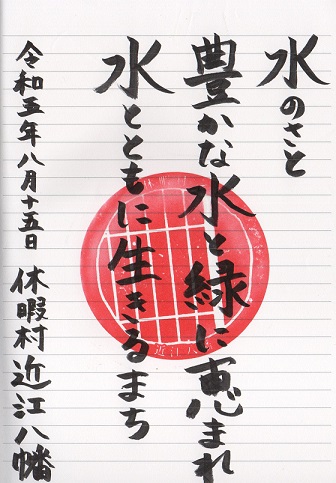 水のさと
豊かな水と緑に恵まれ
水とともに生きるまち
令和五年八月十五日
休暇村近江八幡